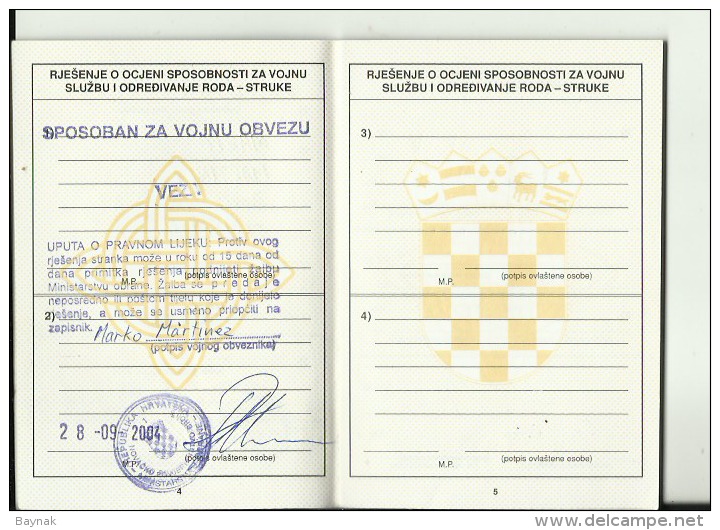 RJEŠENJE O OCJENI SPOSOBNOSTI ZA VOJNU
SLUŽBU I ODREĐIVANJE RODA – STRUKE
1)
SPOSOBAN ZA VOJNU OBVEZU
VEZ.
UPUTA O PRAVNOM LIJEKU: Protiv ovog
rješenja stranka može u roku od 15 dana od
dana primitka rješenja podnijeti žalbu
M.P. (potpis ovlaštene osobe)
Ministarstvu obrane. Žalba se predaje
neposredno ili poštom tijelu koje je donijelo
2)
rješenje, a može se usmeno priopćiti na
zapisnik.
Marko Martinez
(potpis vojnog obveznika)
REPUBLIKA HRVATSKA
28 -09- 2004
M.P. (potpis ovlaštene osobe)
4
RJEŠENJE O OCJENI SPOSOBNOSTI ZA VOJNU
SLUŽBU I ODREĐIVANJE RODA – STRUKE
3)
M.P. (potpis ovlaštene osobe)
4)
M.P. (potpis ovlaštene osobe)
5
Baynak
www.delcampe.net